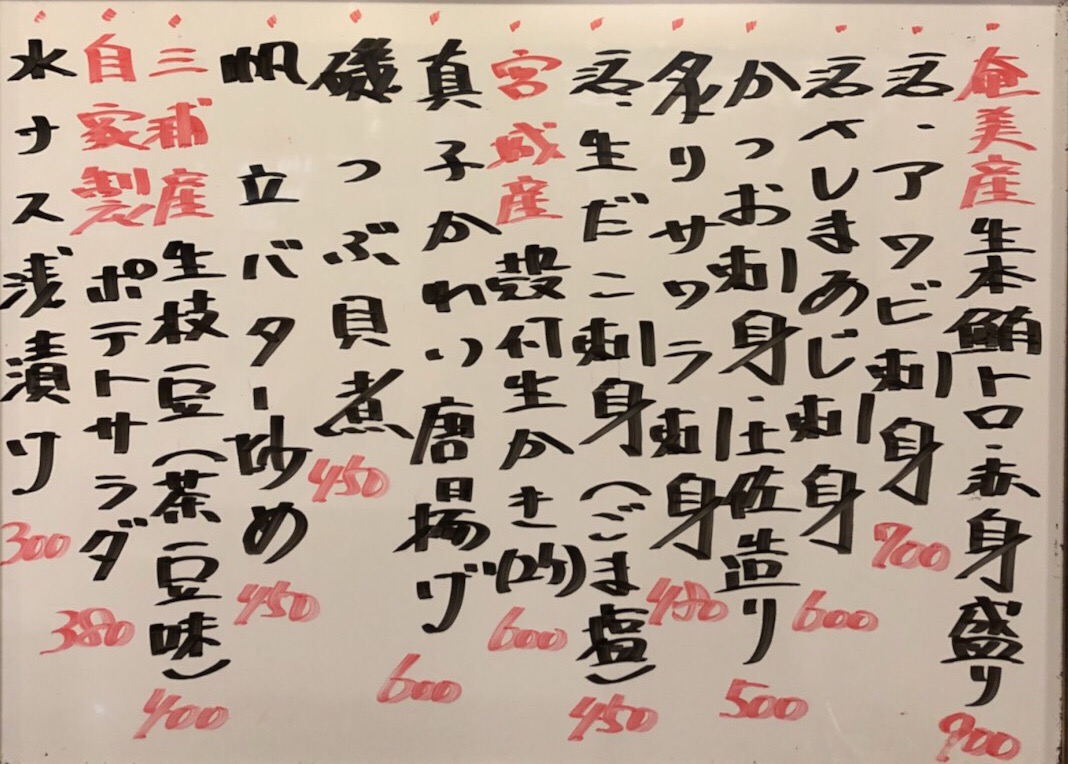 奄美産生本鮪トロ・赤身盛り 900
活・アワビ刺身 700
活〆しまあじ刺身 600
かつお刺身・土佐造り 500
炙りサワラ刺身 480
活・生だこ刺身(ごま塩) 450
宮城産殻付生かき(2ケ) 600
真子かれい唐揚げ 600
磯つぶ貝煮 450
帆立バター炒め 450
三浦産生枝豆(茶豆味) 400
自家製ポテトサラダ 380
水ナス浅漬け 300